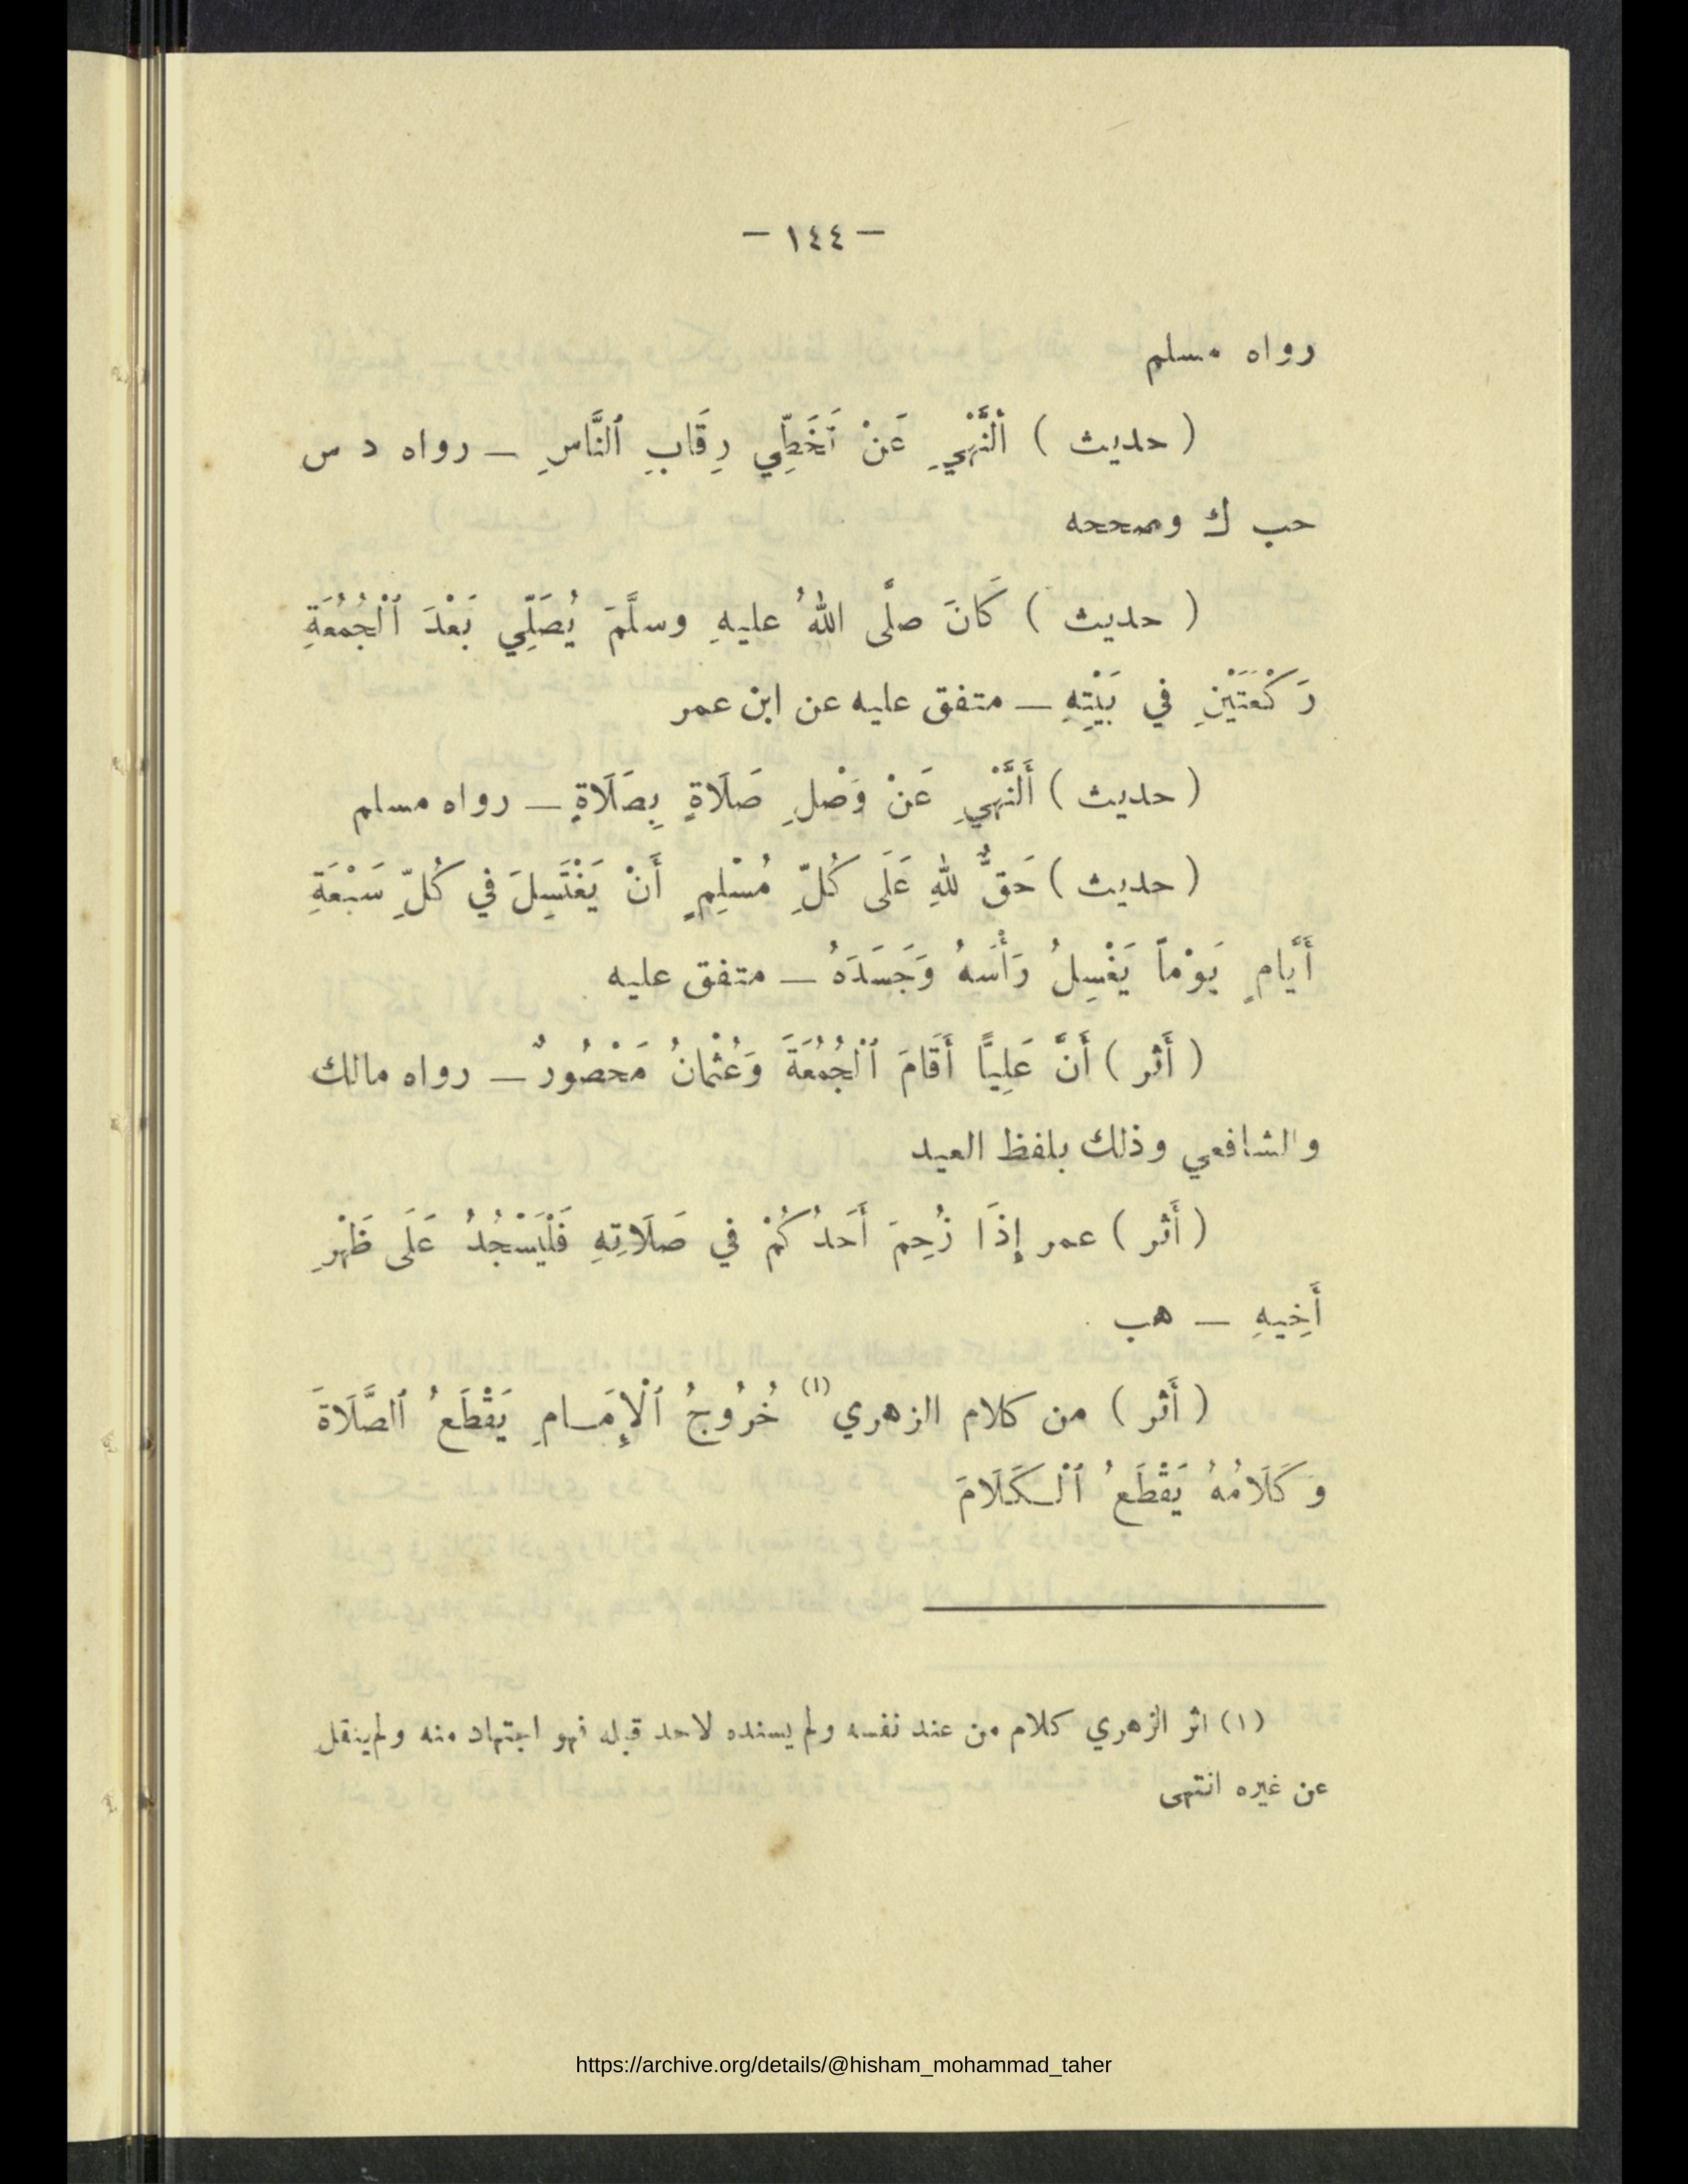 — ١٤٤ —
رواه مسلم
( حديث ) ٱلنَّهْيِ عَنْ تَخَطِّي رِقَابِ ٱلنَّاسِ — رواه د س
حب ك وصححه
( حديث ) كَانَ صلَّى اللهُ عليهِ وسلَّمَ يُصَلِّي بَعْدَ ٱلْجُمُعَةِ
رَكْعَتَيْنِ في بَيْتِهِ — متفق عليه عن ابن عمر
( حديث ) أَلنَّهْيِ عَنْ وَصْلِ صَلَاةٍ بِصَلَاةٍ — رواه مسلم
( حديث ) حَقٌّ للهِ عَلَى كُلِّ مُسْلِمٍ أَنْ يَغْتَسِلَ في كُلِّ سَبْعَةِ
أَيَّامٍ يَوْماً يَغْسِلُ رَأْسَهُ وَجَسَدَهُ — متفق عليه
( أَثر ) أَنَّ عَلِيًّا أَقَامَ ٱلْجُمُعَةَ وَعُثْمانُ مَحْصُورٌ — رواه مالك
والشافعي وذلك بلفظ العيد
( أَثر ) عمر إِذَا زُحِمَ أَحَدُكُمْ في صَلَاتِهِ فَلْيَسْجُدُ عَلَى ظَهْرِ
أَخِيهِ — هب
( أَثر ) من كلام الزهري (١) خُرُوجُ ٱلْإِمَامِ يَقْطَعُ ٱلصَّلَاةَ
وَكَلَامُهُ يَقْطَعُ ٱلْكَلَامَ
(١) اثر الزهري كلام من عند نفسه ولم يسنده لاحد قبله فهو اجتهاد منه ولم ينقل
عن غيره انتهى
https://archive.org/details/@hisham_mohammad_taher